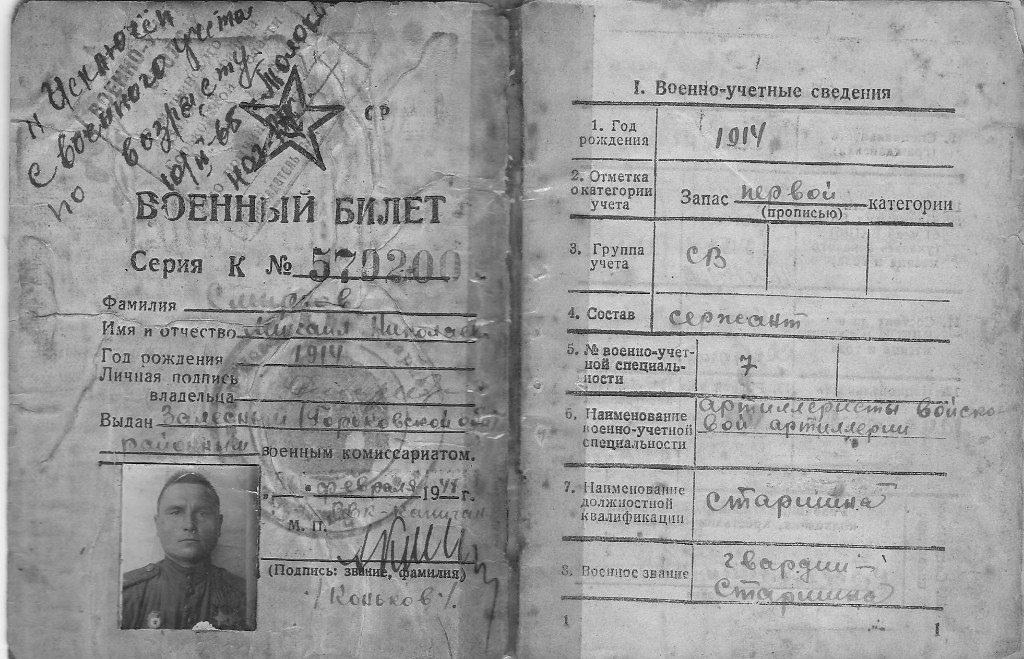 Исключён
с военного учёта
по возрасту
ВОЕННЫЙ БИЛЕТ
Серия К № 579200
Фамилия Смирнов
Имя и отчество Михаил Николаев.
Год рождения 1914
Личная подпись
владельца
Выдан Залесным (Горьковской обл)
районным военным комиссариатом.
" " февраля 1948 г.
М. П.
(Подпись: звание, фамилия)
/Коньков/.
I. Военно-учетные сведения
1. Год рождения
1914
2. Отметка о категории учета
Запас первой категории
(прописью)
3. Группа учета
СВ
4. Состав
сержант
5. № военно-учет-
ной специаль-
ности
7
6. Наименование
военно-учетной
специальности
артиллеристы войско
вой артиллерии
7. Наименование
должностной
квалификации
старшина
8. Военное звание
гвардии-
старшина
1
1